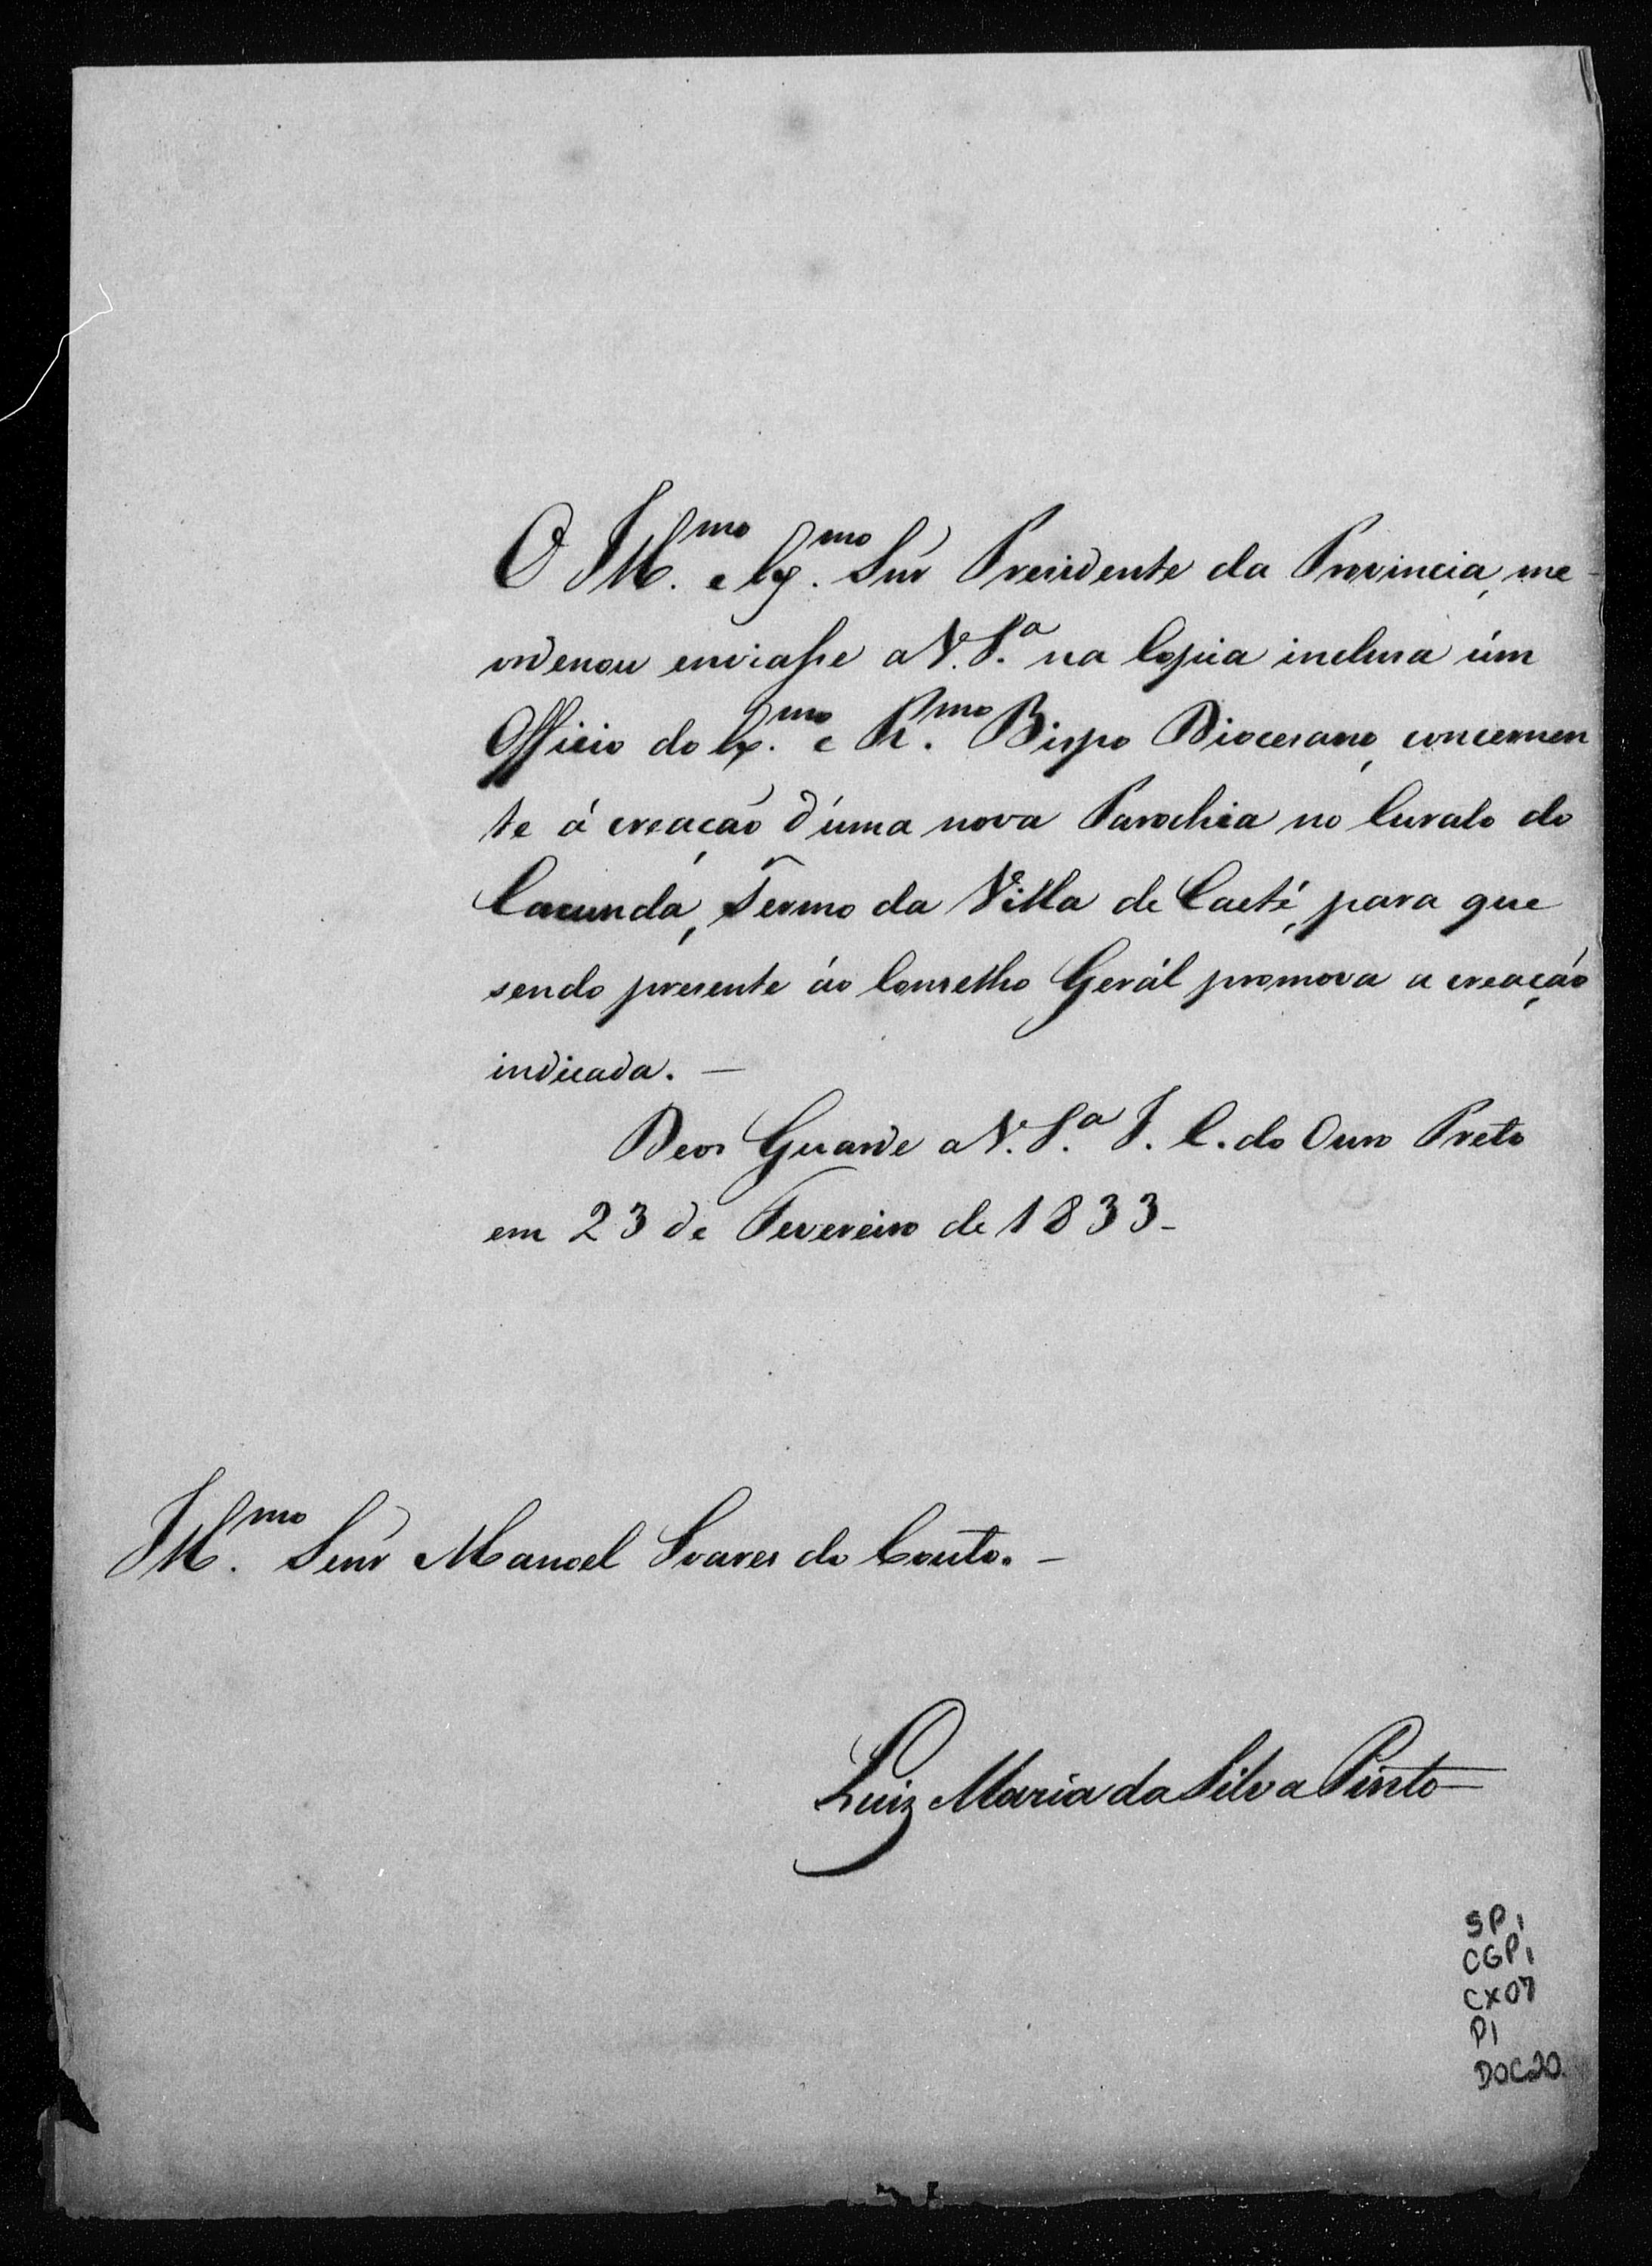 O Ill.mo e Ex.mo Snr Presidente da Provincia, me
ordenou enviasse a V. S.a na Copia inclusa úm
Officio do Ex.mo e R.mo Bispo Diocesano, concernen
te á creação d'úma nova Parochia no Curato do
Cacunda, Termo da Villa de Caeté, para que
sendo presente áo Conselho Gerál promova a creação
indicada. —
Deos Guarde a V. S.a I. C. do Ouro Preto
em 23 de Fevereiro de 1833 -
Ill.mo Senr Manoel Soares do Couto. -
Luiz Maria da Silva Pinto
SP1
CGP1
CX07
P1
DOC20.